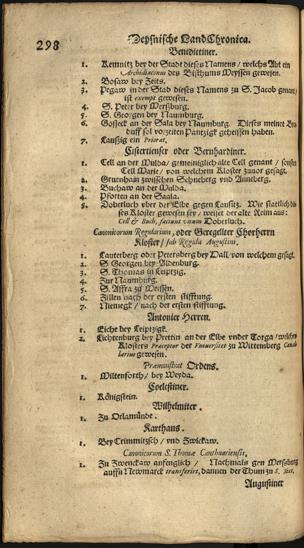 298
Meysnische LandChronica.
Benedictiner.
1. Kemnitz bey der Stad dieses Namens / welchs Abt ein
Archidiaconus des Bisthums Meyssen gewesen.
2. Bosaw bey Zeits.
3. Pegaw in der Stad dieses Namens zu S. Jacob genant/
ist exempt gewesen.
4. S. Peter bey Merßburg.
5. S. Georgen bey Naumburg.
6. Gosseck an der Sala bey Naumburg. Dieses meinet
duff sol vorzeiten geheissen haben.
7. Laußzig ein Priorat,
Cistertienser oder Bernhardiner.
1. Cell an der Mulda / gemeiniglich alte Cell genant / sonsten
Cell Marie / von welchem Kloster zuvor gesagt.
2. Gruenhain zwisschen Schneberg vnd Anneberg.
3. Buchaw an der Mulda.
4. Pforten an der Saala.
5. Dobeluch vber der Elbe gegen Lausitz. Wie stattlich die-
ses Kloster gewesen sey / weiset der alte Reim aus:
Cell & Buch, Dobeluch.
Canonicorum Regularium, oder Geregelter Chorherrn
Kloster / sub Regula Augustini,
1. Lauterberg oder Petersberg bey Hall / von welchem gesagt.
2. S. Georgen bey Aldenburg.
3. S. Thomas zu Leiptzig.
4. Zur Naumburg.
5. S. Affra zu Meissen.
6. Zillen nach der ersten stifftung.
7. Niemegk / nach der ersten stifftung.
Antonier Herren.
1. Eiche bey Leiptzigk.
2. Lichtenburg bey Prettin an der Elbe vnder Torga / welchs
Klosters Præceptor der Vniuersitet zu Wittemberg Cancel-
larius gewesen.
Præmonstrat Ordens.
1. Miltenforth / bey Weyda.
Coelestiner.
1. Königstein.
Wilhelmiter.
1. Zu Orlamünde.
Karthaus.
1. Bey Crimmitzsch / vnd Zwickaw.
Canonicorum S. Thomæ Canthuariensis,
1. Zu Zwenckaw anfenglich / Nachmals gen Merßburg
auffn Newmarck transferirt, dannen der Thum zu S. Sixt.
Augustiner